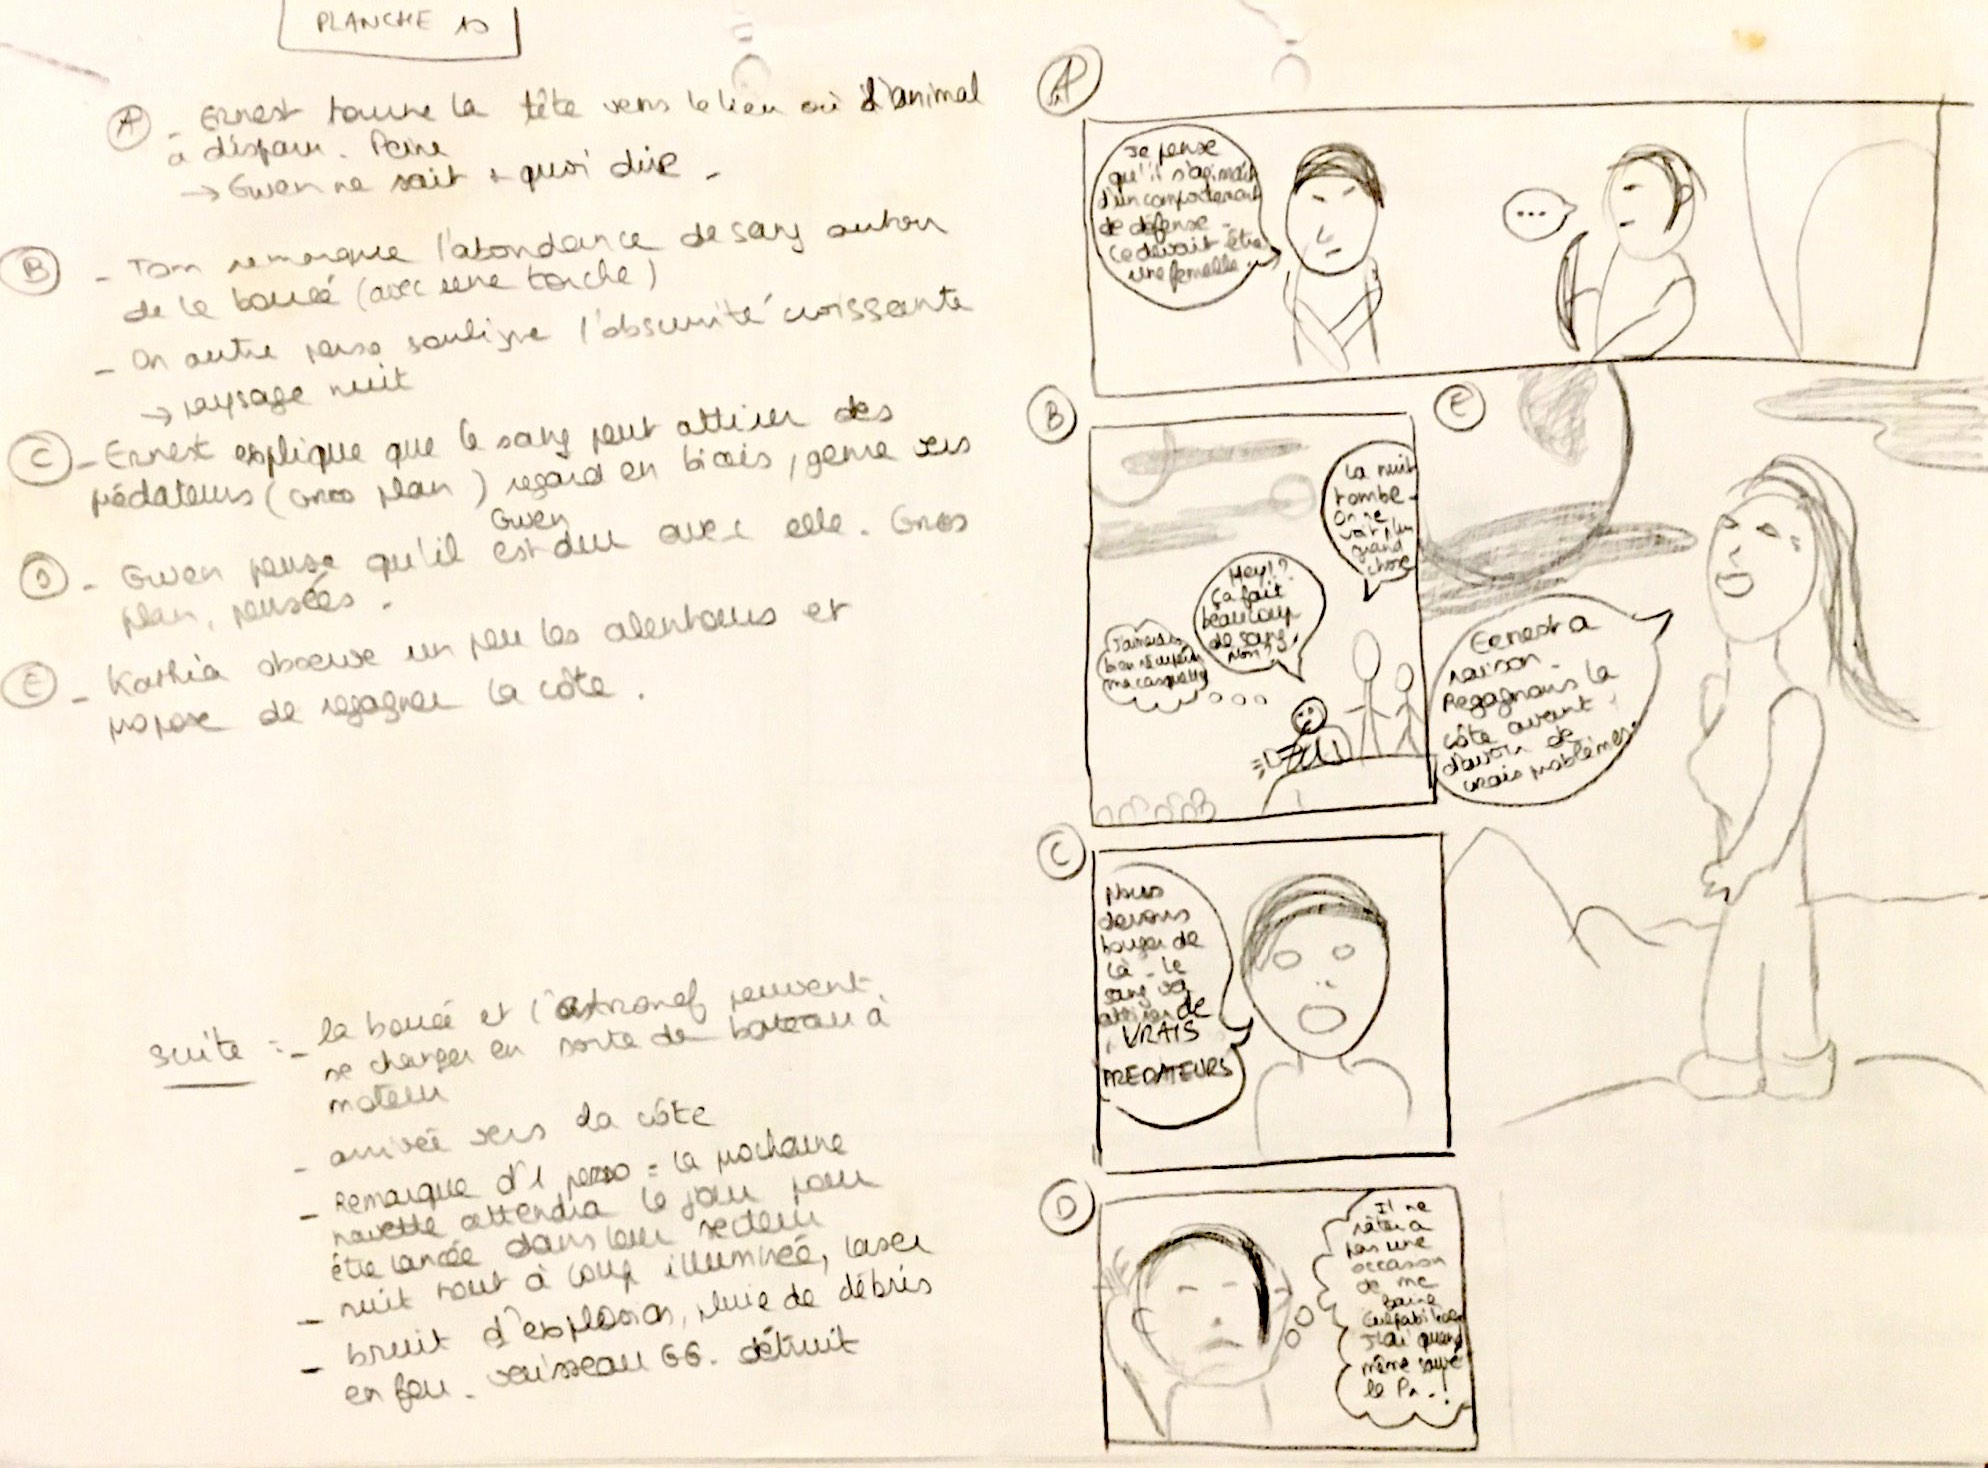 PLANCHE 10
A - Ernest tourne la tête vers le lieu où l'animal
a disparu. Peine
→ Gwen ne sait + quoi dire -
B - Tom remarque l'abondance de sang autour
de la bouée (avec une torche)
- Un autre perso souligne l'obscurité croissante
→ paysage nuit
C - Ernest explique que le sang peut attirer des
prédateurs (gros plan) regard en biais, genre vers
Gwen
D - Gwen pense qu'il est dur avec elle. Gros
plan, pensées.
E - Kathia observe un peu les alentours et
propose de regagner la côte.
suite = - la bouée et l'astronef peuvent
se changer en sorte de bateau à
moteur
- arrivée vers la côte
- Remarque d'1 perso = la prochaine
navette attendra le jour pour
être lancée dans leur secteur
- nuit tout à coup illuminée, laser
- bruit d'explosion, pluie de débris
en feu. vaisseau GG. détruit
A
Je pense
qu'il s'agissait
d'un comportement
de défense -
ce devait être
une femelle.
...
B
La nuit
tombe -
On ne
voit plus
grand
chose
Hey!?
ça fait
beaucoup
de sang,
non?
J'aimerais
bien récupérer
ma casquette
E
Ernest a
raison -
Regagnons la
côte avant
d'avoir de
vrais problèmes.
C
Nous
devons
bouger de
là - le
sang va
attirer de
VRAIS
PREDATEURS
D
Il ne
ratera
pas une
occasion
de me
faire
culpabiliser
J'ai quand
même sauvé
le Pr.!